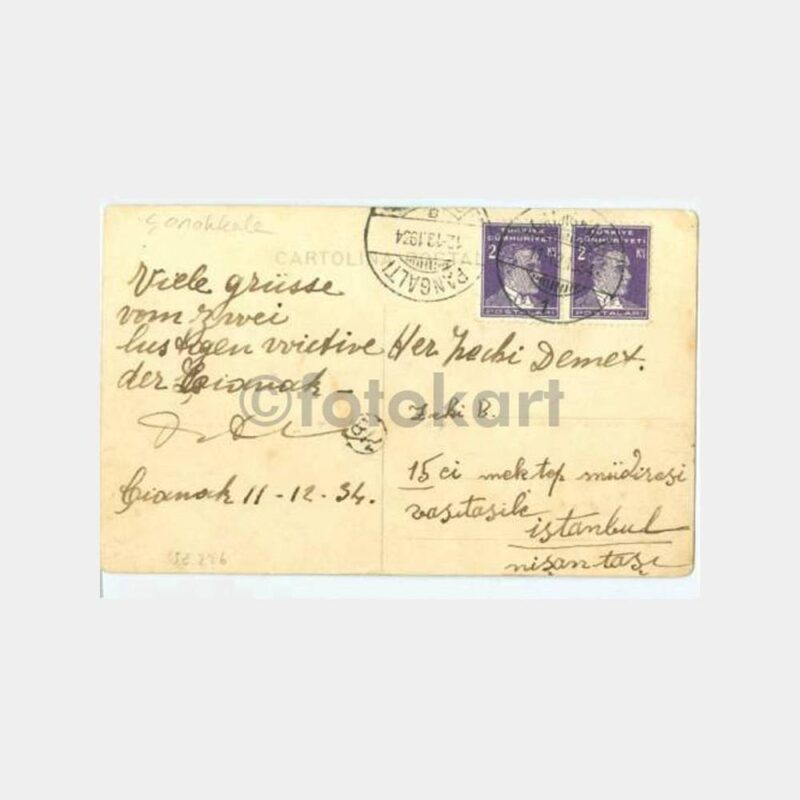 Çanakkale
CARTOLINA POSTAL
B
12.12.1934
PANGALTI
TÜRKİYE
CÜMHURİYETİ
2 Kş
POSTALARI
TÜRKİYE
CÜMHURİYETİ
2 Kş
POSTALARI
Viele grüsse
vom zwei
lustigen
der Çianak –
Her Zecki Demet.
Zeki B.
15 ci mektep müdiresi
vasıtasile
istanbul
nişantaşı
Çianak 11-12-34.
©fotokart